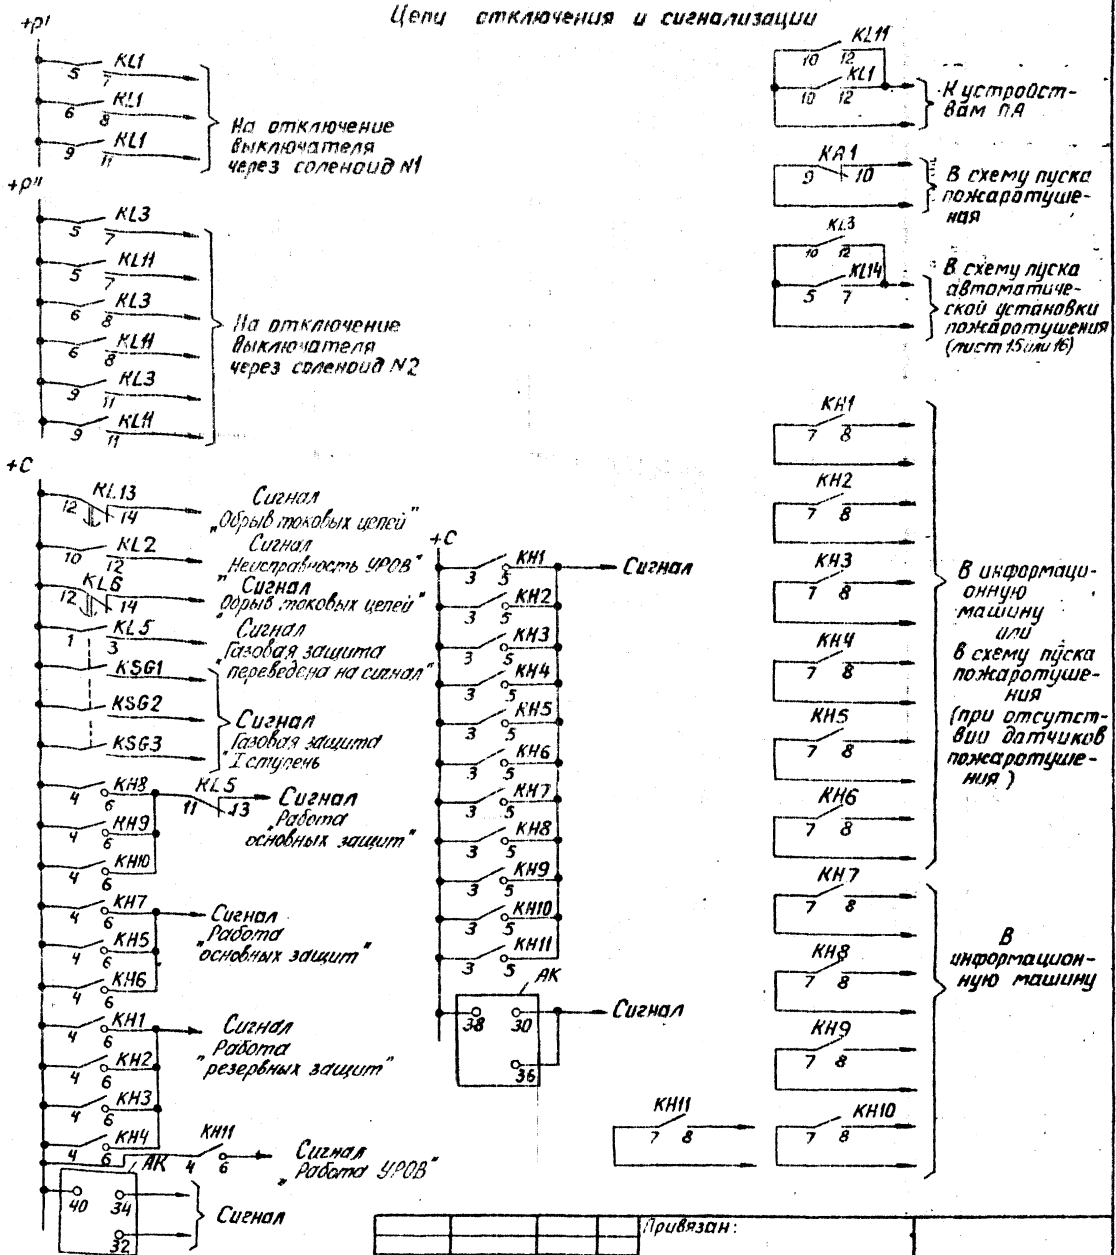 Цепи отключения и сигнализации
+P'
KL1
5 7
KL1
6 8
KL1
9 11
На отключение
выключателя
через соленоид N1
+P"
KL3
5 7
KL11
5 7
KL3
6 8
KL11
6 8
KL3
9 11
KL11
9 11
На отключение
выключателя
через соленоид N2
+C
KL13
12 14
Сигнал
"Обрыв токовых цепей"
KL2
10 12
Сигнал
"Неисправность УРОВ"
KL6
12 14
Сигнал
"Обрыв токовых цепей"
KL5
1 3
Сигнал
"Газовая защита
переведена на сигнал"
KSG1
KSG2
KSG3
Сигнал
"Газовая защита
I ступень
KH8
4 6
KH9
4 6
KH10
4 6
KL5
11 13
Сигнал
"Работа
основных защит"
KH7
4 6
KH5
4 6
KH6
4 6
Сигнал
"Работа
основных защит"
KH1
4 6
KH2
4 6
KH3
4 6
KH4
4 6
Сигнал
"Работа
резервных защит"
KH11
4 6
Сигнал
"Работа УРОВ"
AK
40 34
32
Сигнал
+C
KH1
3 5
Сигнал
KH2
3 5
KH3
3 5
KH4
3 5
KH5
3 5
KH6
3 5
KH7
3 5
KH8
3 5
KH9
3 5
KH10
3 5
KH11
3 5
AK
38 30
36
Сигнал
KL11
10 12
KL1
10 12
К устройст-
вам ПА
KA1
9 10
В схему пуска
пожаротуше-
ная
KL3
10 12
KL14
5 7
В схему пуска
автоматиче-
ской установки
пожаротушения
(лист 15 или 16)
KH1
7 8
KH2
7 8
KH3
7 8
KH4
7 8
KH5
7 8
KH6
7 8
В информаци-
онную
машину
или
в схему пуска
пожаротуше-
ния
(при отсутст-
вии датчиков
пожаротуше-
ния)
KH7
7 8
KH8
7 8
KH9
7 8
KH11
7 8
KH10
7 8
В
информацион-
ную машину
Привязан: